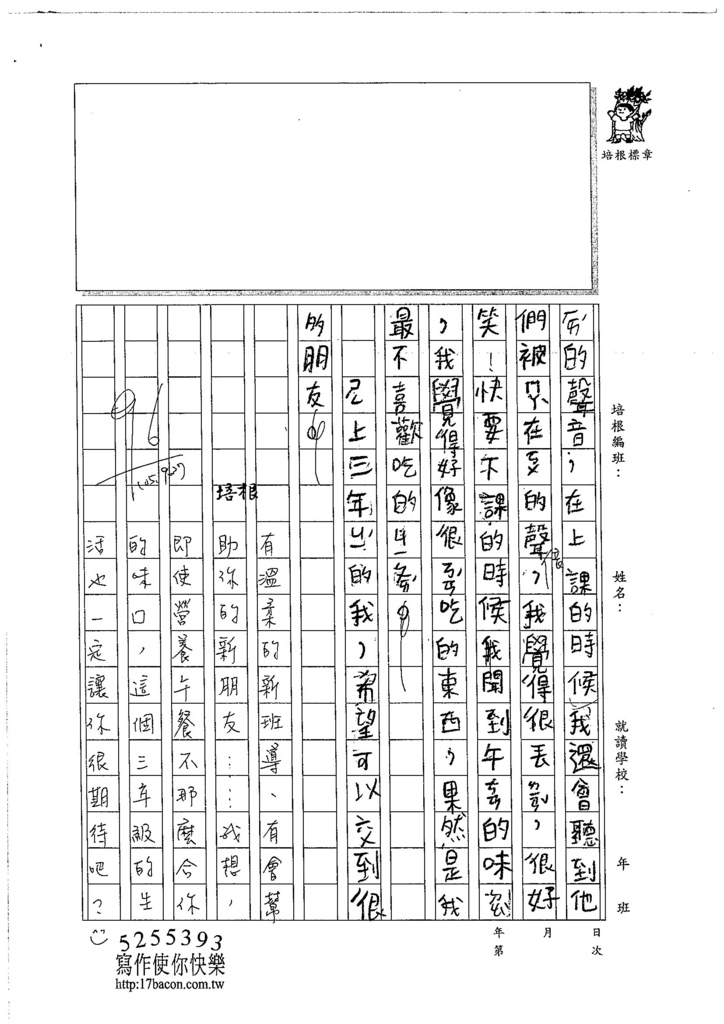 培根標章
培根編班：
姓名：
就讀學校：
年
班
的聲音，在上課的時候我還會聽到他
們被ㄗ在ㄎ的聲音，我覺得很丟ㄌㄢ，很好
笑！快要下課的時候我聞到午ㄘㄢ的味ㄉㄠ
，我覺得好像很ㄋㄢ吃的東西，果然是我
最不喜歡吃的
上三年ㄐㄧ的我，希望可以交到很
多朋友。
96
105.9.27
培根
有溫柔的新班導、有會幫
助你的新朋友……我想，
即使營養午餐不那麼合你
的味口，這個三年級的生
活也一定讓你很期待吧？
日
次
月
年
第
5255393
寫作使你快樂
http:17bacon.com.tw